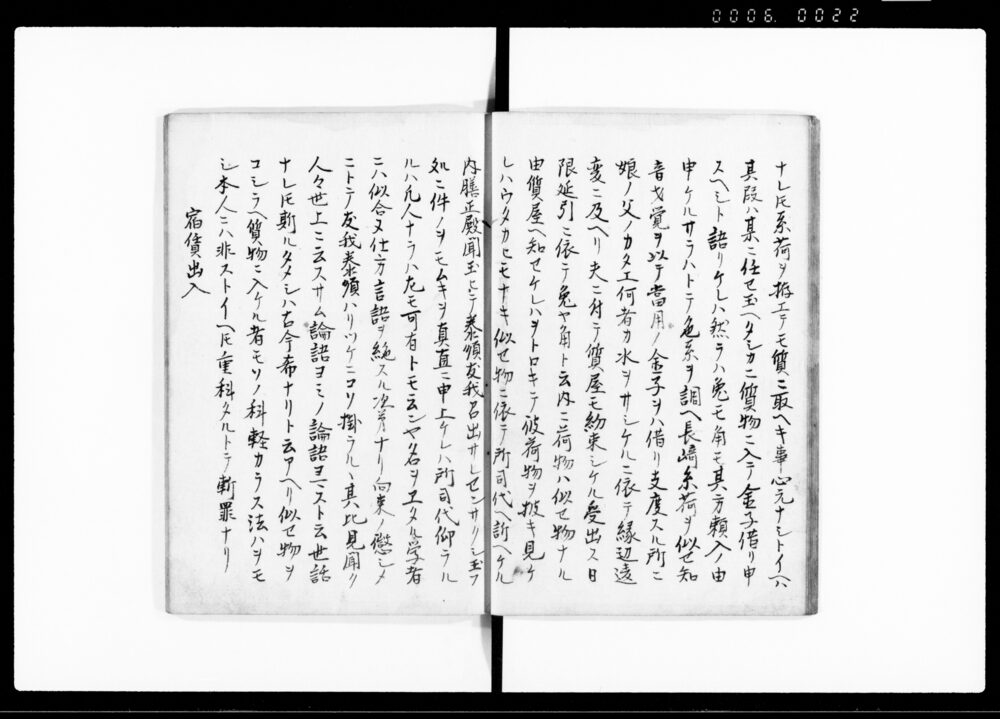 0006. 0022
ナレ𪜈系荷ヲ拵エテモ質ニ取ヘキ事心元ナシトイヘハ
其段ハ某ニ任セ玉ヘタシカニ質物ニ入テ金子借リ申
スヘシト語リケレハ然ラハ兔モ角モ其方頼入ノ由
申ケルサラハトテ色系ヲ調ヘ長﨑糸荷ヲ似セ知
音才覚ヲ以テ當用ノ金子ヲハ借リ支度スル所ニ
娘ノ父ノカタエ何者カ水ヲサシケルニ依テ縁辺違
変ニ及ヘリ夫ニ付テ質屋モ約束シケル受出ス日
限延引ニ依テ兔ヤ角ト云内ニ荷物ハ似セ物ナル
由質屋ヘ知セケレハヲトロキテ彼荷物ヲ披キ見ケ
レハウタカヒモナキ似セ物ニ依テ所司代ヘ訴ヘケル
内膳正殿聞玉ヒテ泰順友我召出サレセンサクシ玉フ
処ニ件ノヲモムキヲ真直ニ申上ケレハ所司代仰ラル
ルハ凡人ナラハ尤モ可有トモ云ンヤ名ヲヱタル学者
ニハ似合又仕方言語ヲ絶スル次第ナリ向来ノ懲シメ
ニトテ友我泰順ハリツケニコソ掛ラルヽ其比見聞ク
人々世上ニ云スサム論語ヨミノ論語ヨマスト云世話
ナレ𪜈斯ルタメシハ古今希ナリト云アヘリ似セ物ヲ
コシラヘ質物ニ入ケル者モソノ科軽カラス法ハヲモ
シ本人ニハ非ストイヘ𪜈重科タルトテ斬罪ナリ
宿賃出入